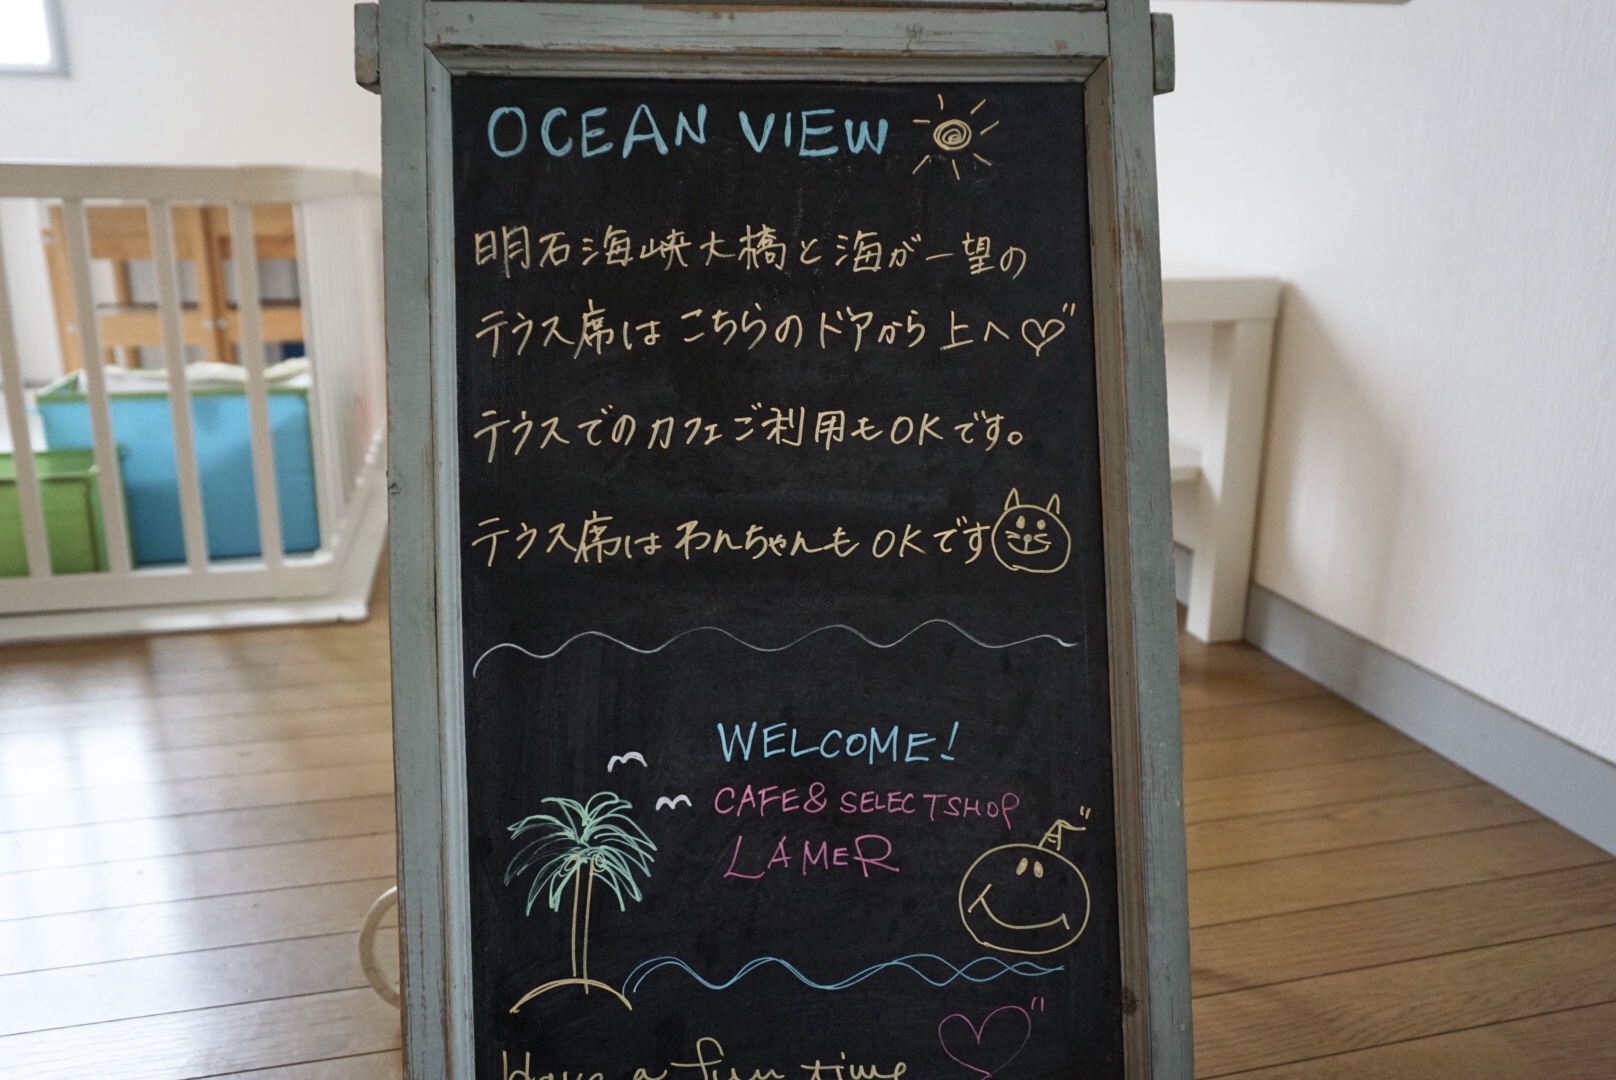 OCEAN VIEW
明石海峡大橋と海が一望の
テラス席はこちらのドアから上へ
テラスでのカフェご利用もOKです。
テラス席はわんちゃんもOKです
WELCOME!
CAFE & SELECTSHOP
LAMER
Have a fun time